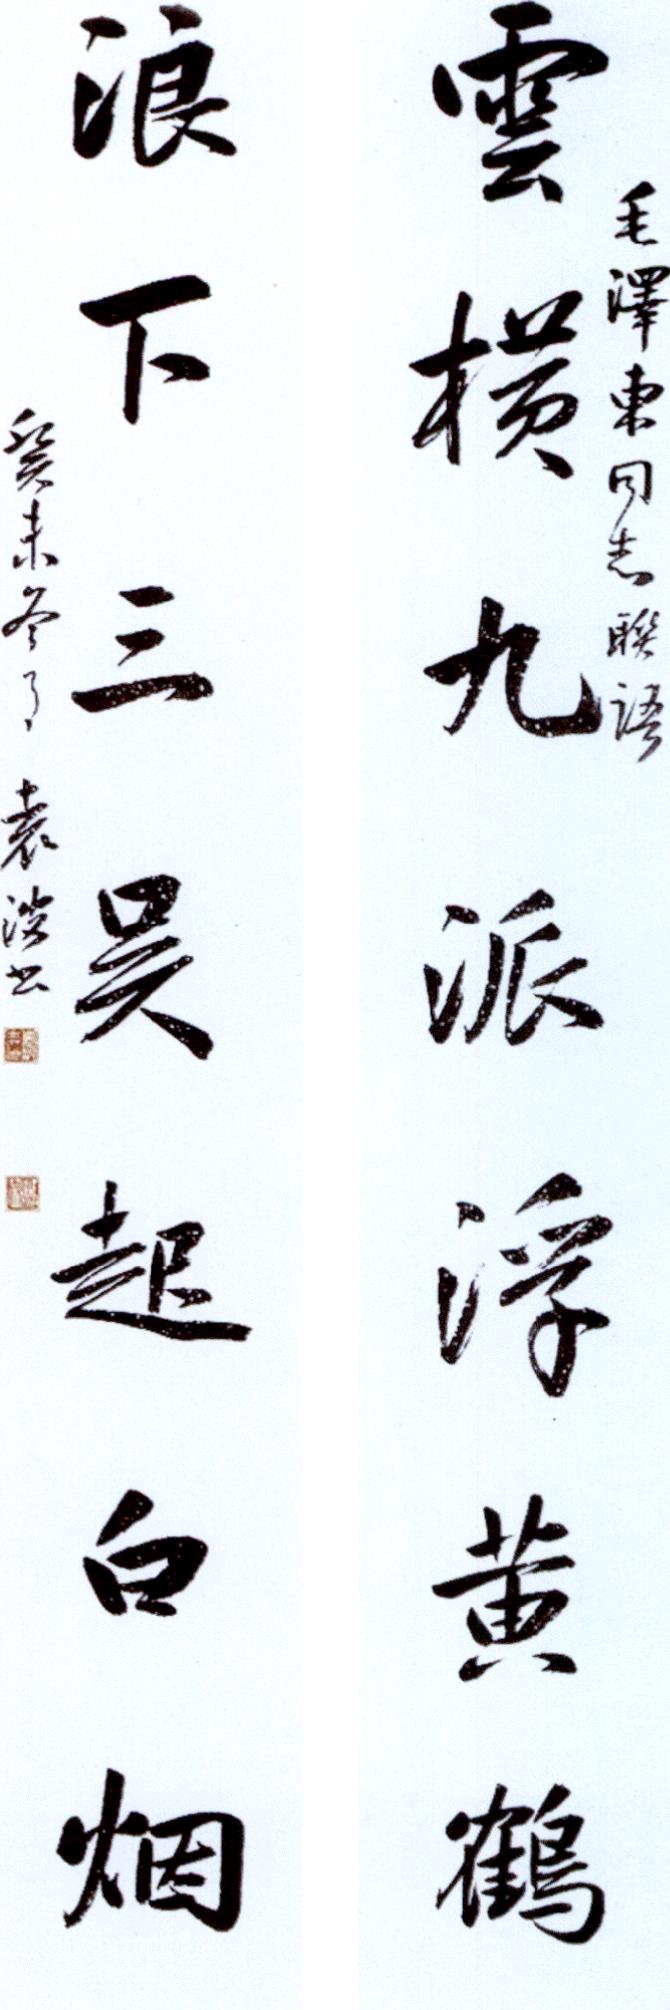 毛澤東同志聯語
雲橫九派浮黄鶴
浪下三吴起白烟
癸未冬月 袁波書